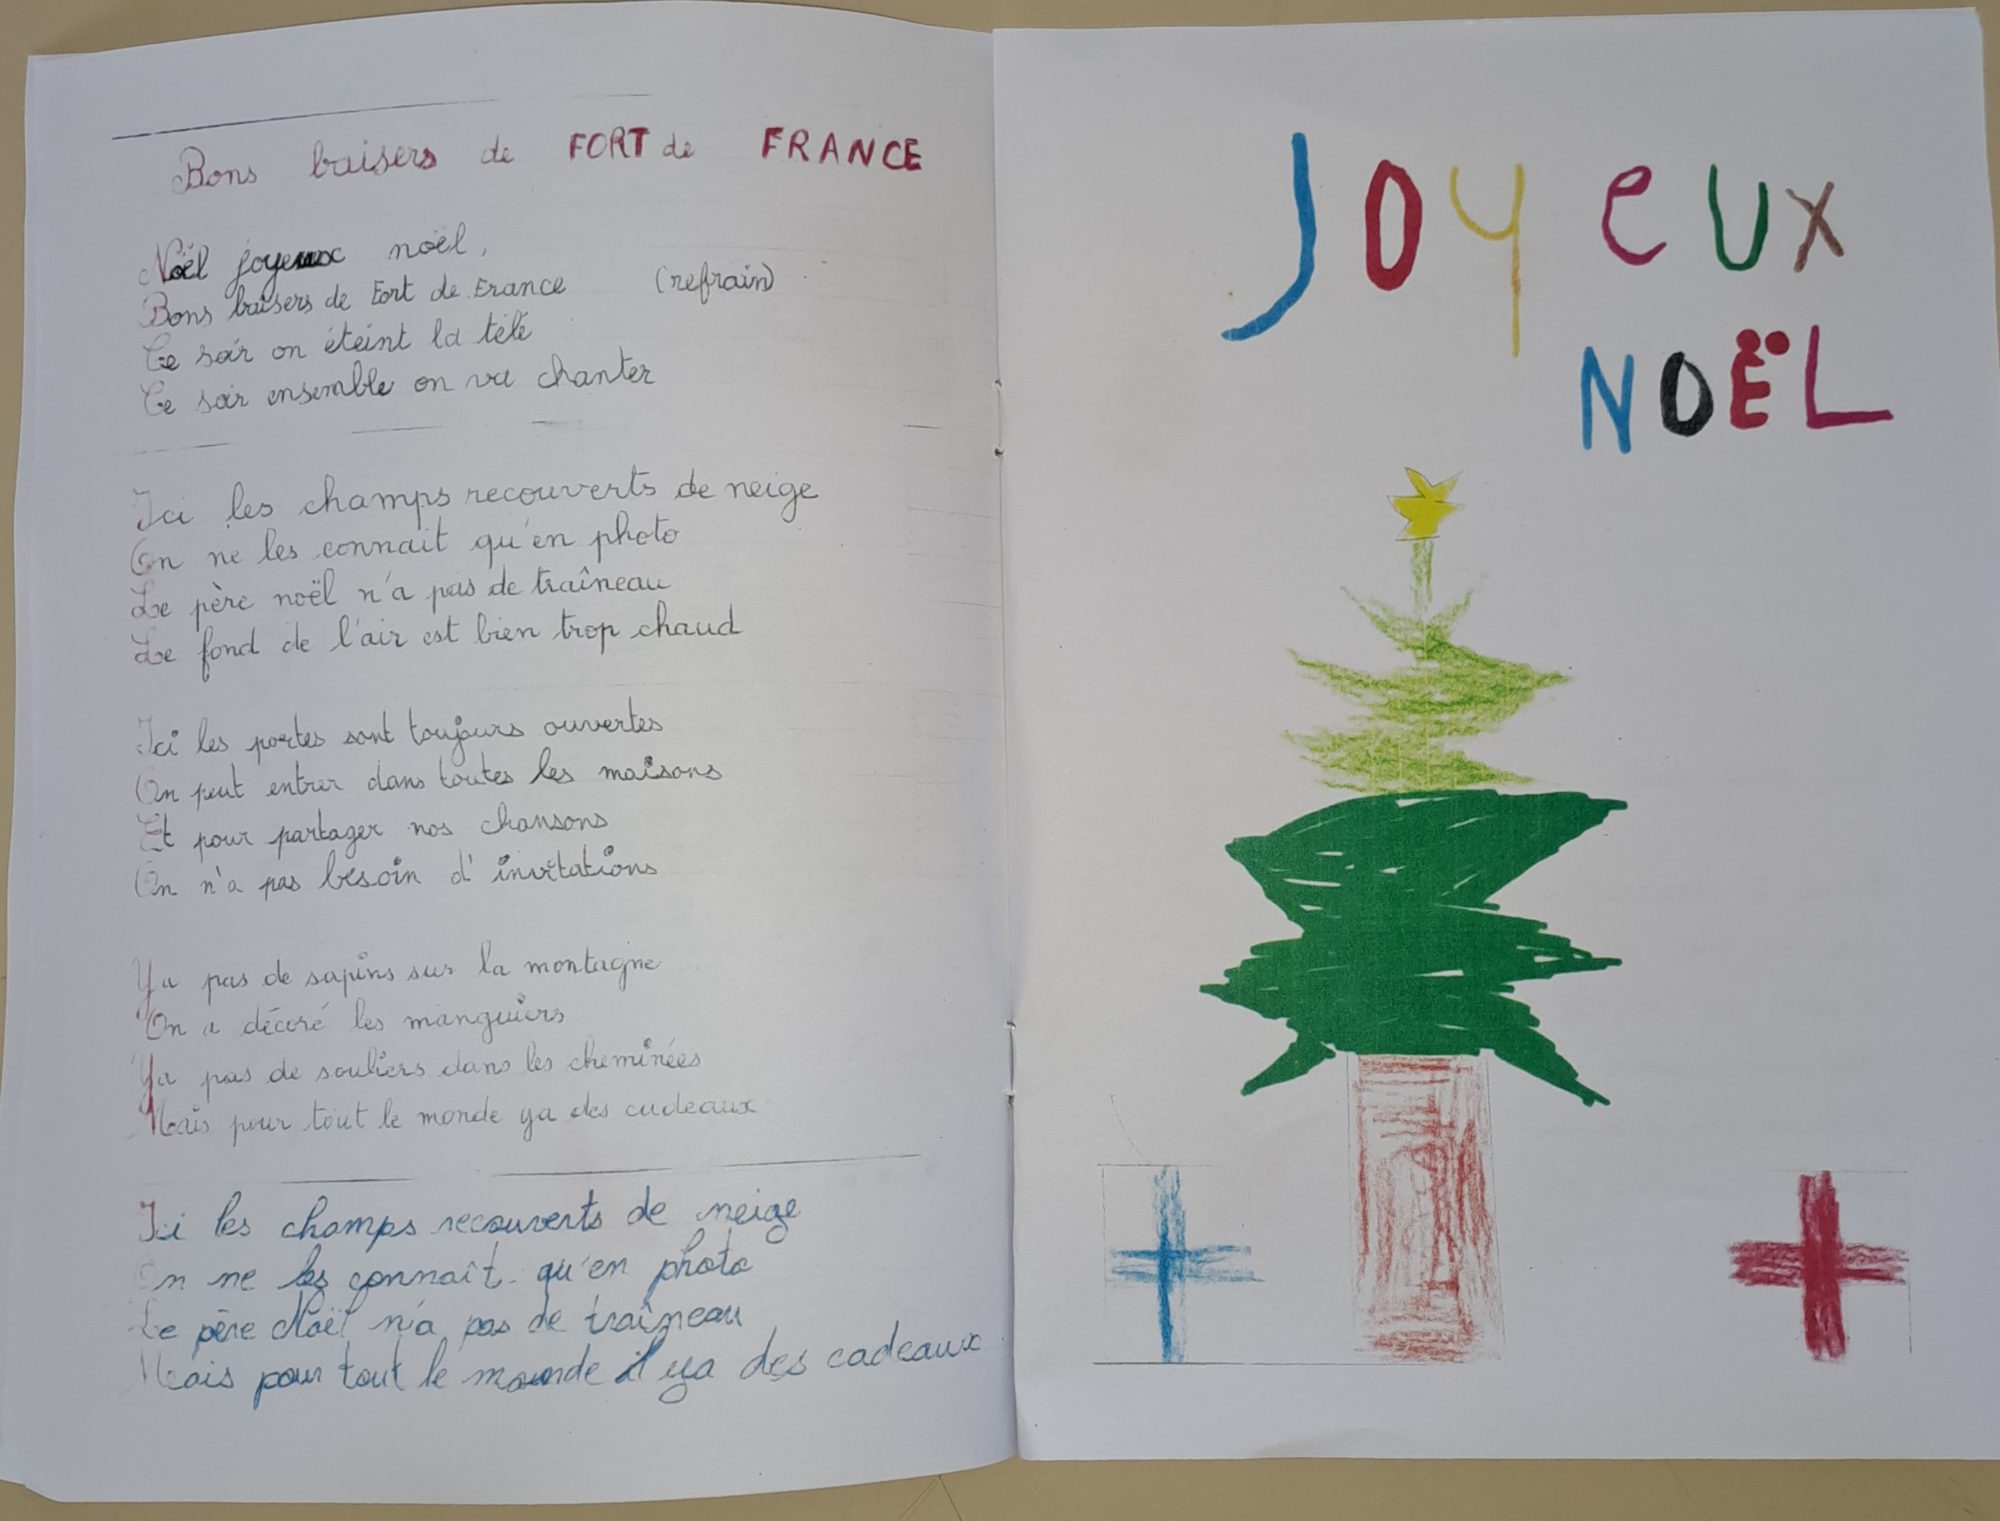 Bons baisers de FORT de FRANCE
Noël joyeux noël,
Bons baisers de Fort de France (refrain)
Ce soir on éteint la télé
Ce soir ensemble on va chanter
Ici les champs recouverts de neige
On ne les connait qu'en photo
Le père noël n'a pas de traîneau
Le fond de l'air est bien trop chaud
Ici les portes sont toujours ouvertes
On peut entrer dans toutes les maisons
Et pour partager nos chansons
On n'a pas besoin d'invitations
Ya pas de sapins sur la montagne
On a décoré les manguiers
Ya pas de souliers dans les cheminées
Mais pour tout le monde ya des cadeaux
Ici les champs recouverts de neige
On ne les connaît qu'en photo
Le père Noël n'a pas de traîneau
Mais pour tout le monde il ya des cadeaux
JOYeUX
NOËL